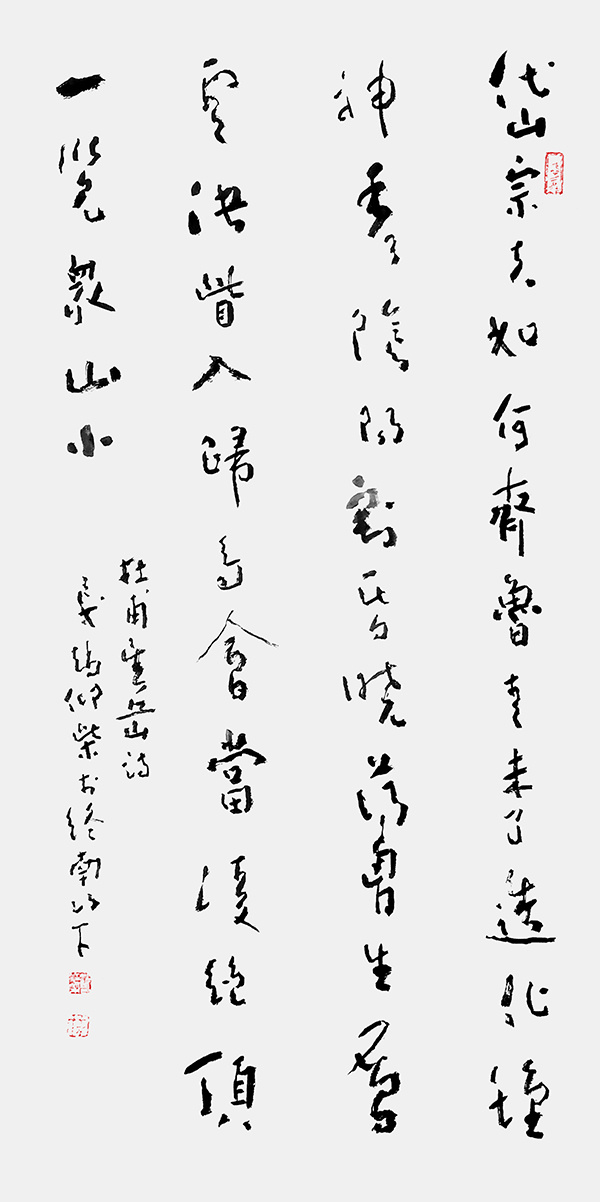 岱宗夫如何齊魯青未了造化鍾
神秀陰陽割昏曉蕩胸生層
雲決眥入歸鳥會當凌絕頂
一覽衆山小
杜甫望岳詩
仰柴於終南山下